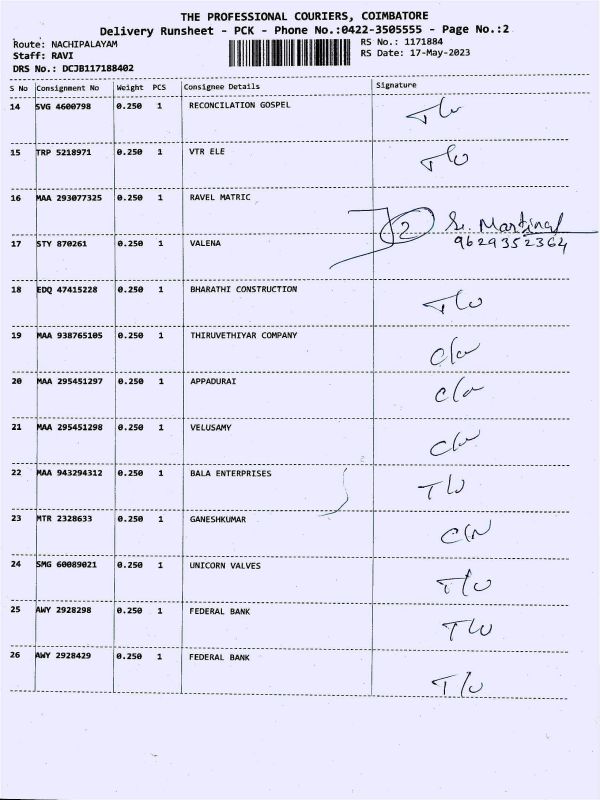 THE PROFESSIONAL COURIERS, COIMBATORE
Delivery Runsheet - PCK - Phone No.:0422-3505555 - Page No.:2
Route: NACHIPALAYAM RS No.: 1171884
Staff: RAVI RS Date: 17-May-2023
DRS No.: DCJB117188402
S No Consignment No Weight PCS Consignee Details Signature
14 SVG 4600798 0.250 1 RECONCILATION GOSPEL
15 TRP 5218971 0.250 1 VTR ELE T/W
16 MAA 293077325 0.250 1 RAVEL MATRIC
2 S. Martina
17 STY 870261 0.250 1 VALENA 9629352364
18 EDQ 47415228 0.250 1 BHARATHI CONSTRUCTION T/W
19 MAA 938765105 0.250 1 THIRUVETHIYAR COMPANY
20 MAA 295451297 0.250 1 APPADURAI
21 MAA 295451298 0.250 1 VELUSAMY
22 MAA 943294312 0.250 1 BALA ENTERPRISES T/W
23 MTR 2328633 0.250 1 GANESHKUMAR
24 SMG 60089021 0.250 1 UNICORN VALVES T/W
25 AWY 2928298 0.250 1 FEDERAL BANK T/W
26 AWY 2928429 0.250 1 FEDERAL BANK T/W